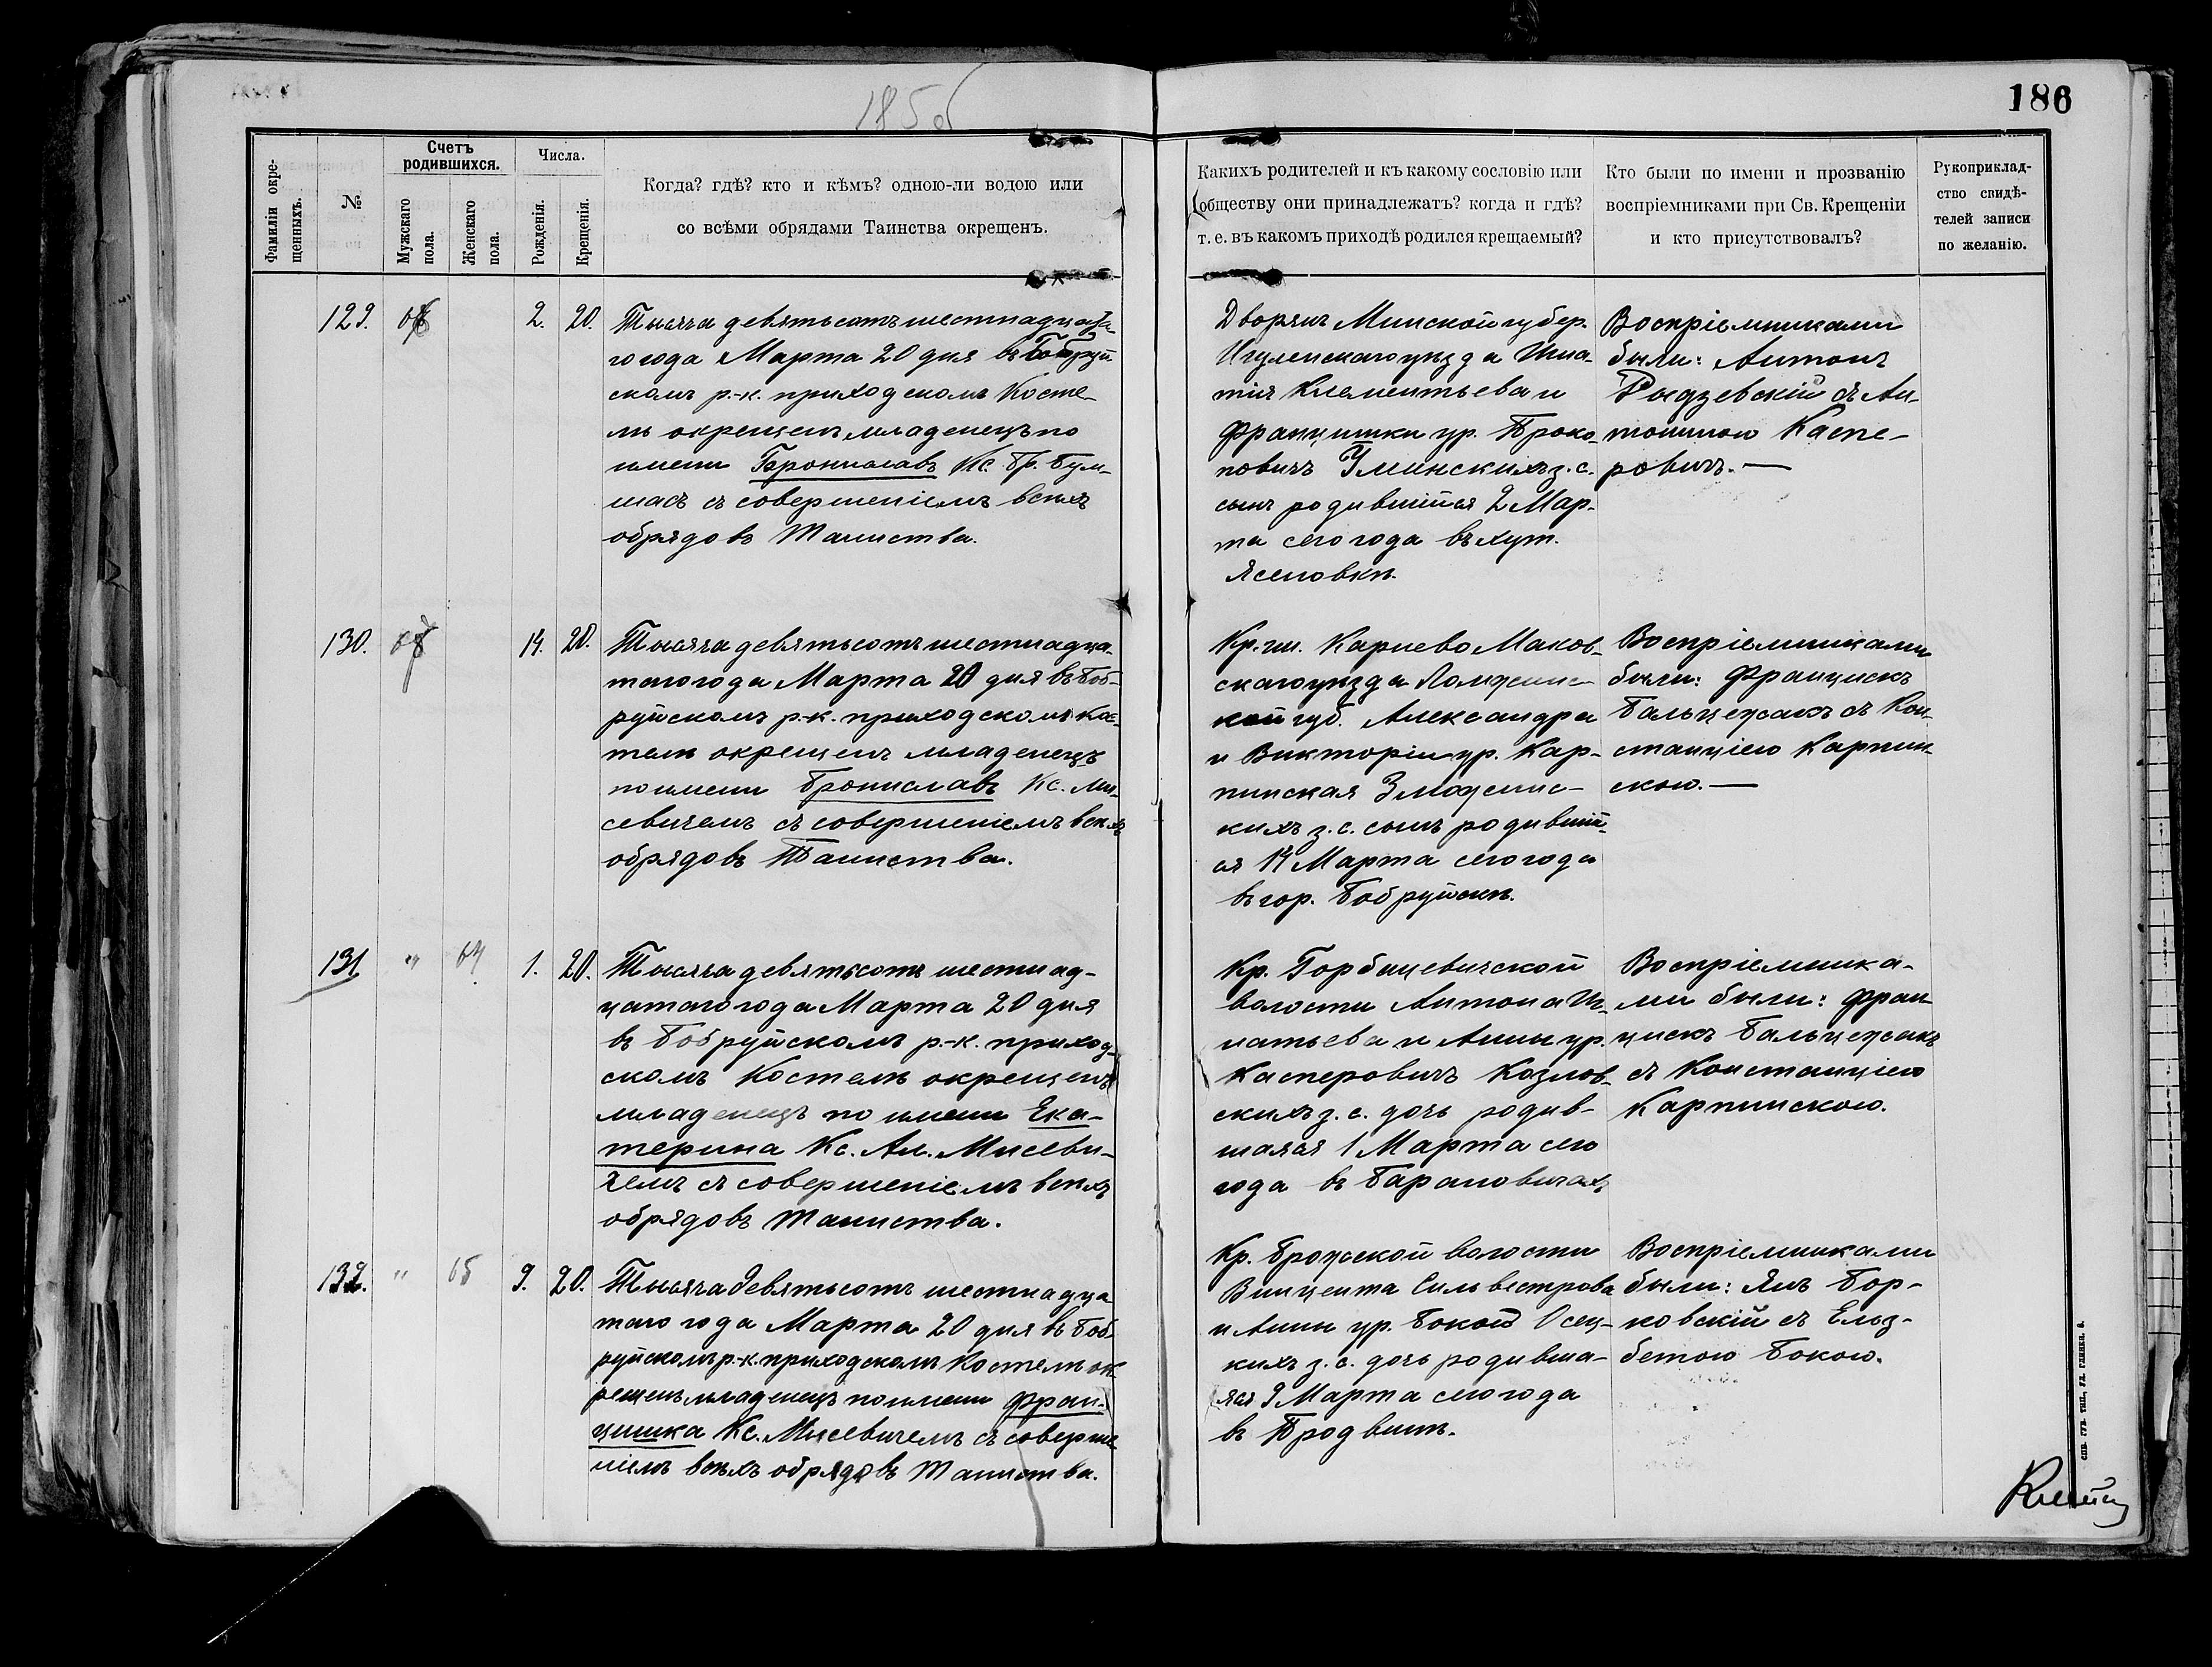 185об
186
Фамиліи окре-
щенныхъ.
№
Счетъ
родившихся.
Мужскаго
пола.
Женскаго
пола.
Числа.
Рожденія.
Крещенія.
Когда? гдѣ? кто и кѣмъ? одною-ли водою или
со всѣми обрядами Таинства окрещенъ.
Какихъ родителей и къ какому сословію или
обществу они принадлежатъ? когда и гдѣ?
т. е. въ какомъ приходѣ родился крещаемый?
Кто были по имени и прозванію
воспріемниками при Св. Крещеніи
и кто присутствовалъ?
Рукоприклад-
ство свидѣ-
телей записи
по желанію.
129.
2. 20.
Тысяча девятьсотъ шестнадцата-
го года Марта 20 дня въ Бобруй-
скомъ р.-к. приходскомъ Косте-
лѣ окрещенъ младенецъ по
имени Брониславъ Кс. Бр. Бум-
шасъ съ совершеніемъ всѣхъ
обрядовъ Таинства.
Дворянъ Минской губер.
Игуменскаго уѣзда Игна-
тія Клементьева и
Францишки ур. Проко-
повичъ Уминскихъ з. с.
сынъ родившійся 2 Мар-
та сего года въ хут.
Ясеновкѣ.
Воспріемниками
были: Антонъ
Рыдзевскій съ Ан-
тониною Каспе-
ровичъ.—
130.
14. 20.
Тысяча девятьсотъ шестнадца-
таго года Марта 20 дня въ Боб-
руйскомъ р.-к. приходскомъ Кос-
телѣ окрещенъ младенецъ
по имени Брониславъ Кс. Ми-
севичемъ съ совершеніемъ всѣхъ
обрядовъ Таинства.
Кр. гм. Карнево Маков-
скаго уѣзда Ломжинс-
кой губ. Александра
и Викторіи ур. Кар-
пинская Змодзинс-
кихъ з. с. сынъ родивший-
ся 14 Марта сего года
въ гор. Бобруйскѣ.
Воспріемниками
были: Францискъ
Бальцежакъ съ Кон-
станціею Карпин-
скою.—
131
" 64
1. 20.
Тысяча девятьсотъ шестнад-
цатаго года Марта 20 дня
въ Бобруйскомъ р.-к. приход-
скомъ Костелѣ окрещенъ
младенецъ по имени Ека-
терина Кс. Ал. Мисеви-
чемъ съ совершеніемъ всѣхъ
обрядовъ Таинства.
Кр. Горбацевичской
волости Антона Иг-
натьева и Анны ур.
Касперовичъ Козлов-
скихъ з. с. дочь родив-
шаяся 1 Марта сего
года въ Барановичахъ
Воспріемника-
ми были: Фран-
цискъ Бальцежакъ
съ Констанціею
Карпинскою.
132.
" 65
9. 20.
Тысяча девятьсотъ шестнадца
таго года Марта 20 дня въ Боб-
руйскомъ р.-к. приходскомъ Костелѣ ок-
рещенъ младенецъ по имени Фран-
цишка Кс. Мисевичемъ съ соверше
ніемъ всѣхъ обрядовъ Таинства.
Кр. Брожской волости
Винцента Сильвестрова
и Анны ур. Бокой Осец-
кихъ з. с. дочь родивша-
яся 9 Марта сего года
въ Бродвинѣ.
Воспріемниками
были: Янъ Бор-
ковскій съ Ельз-
бетою Бокою.